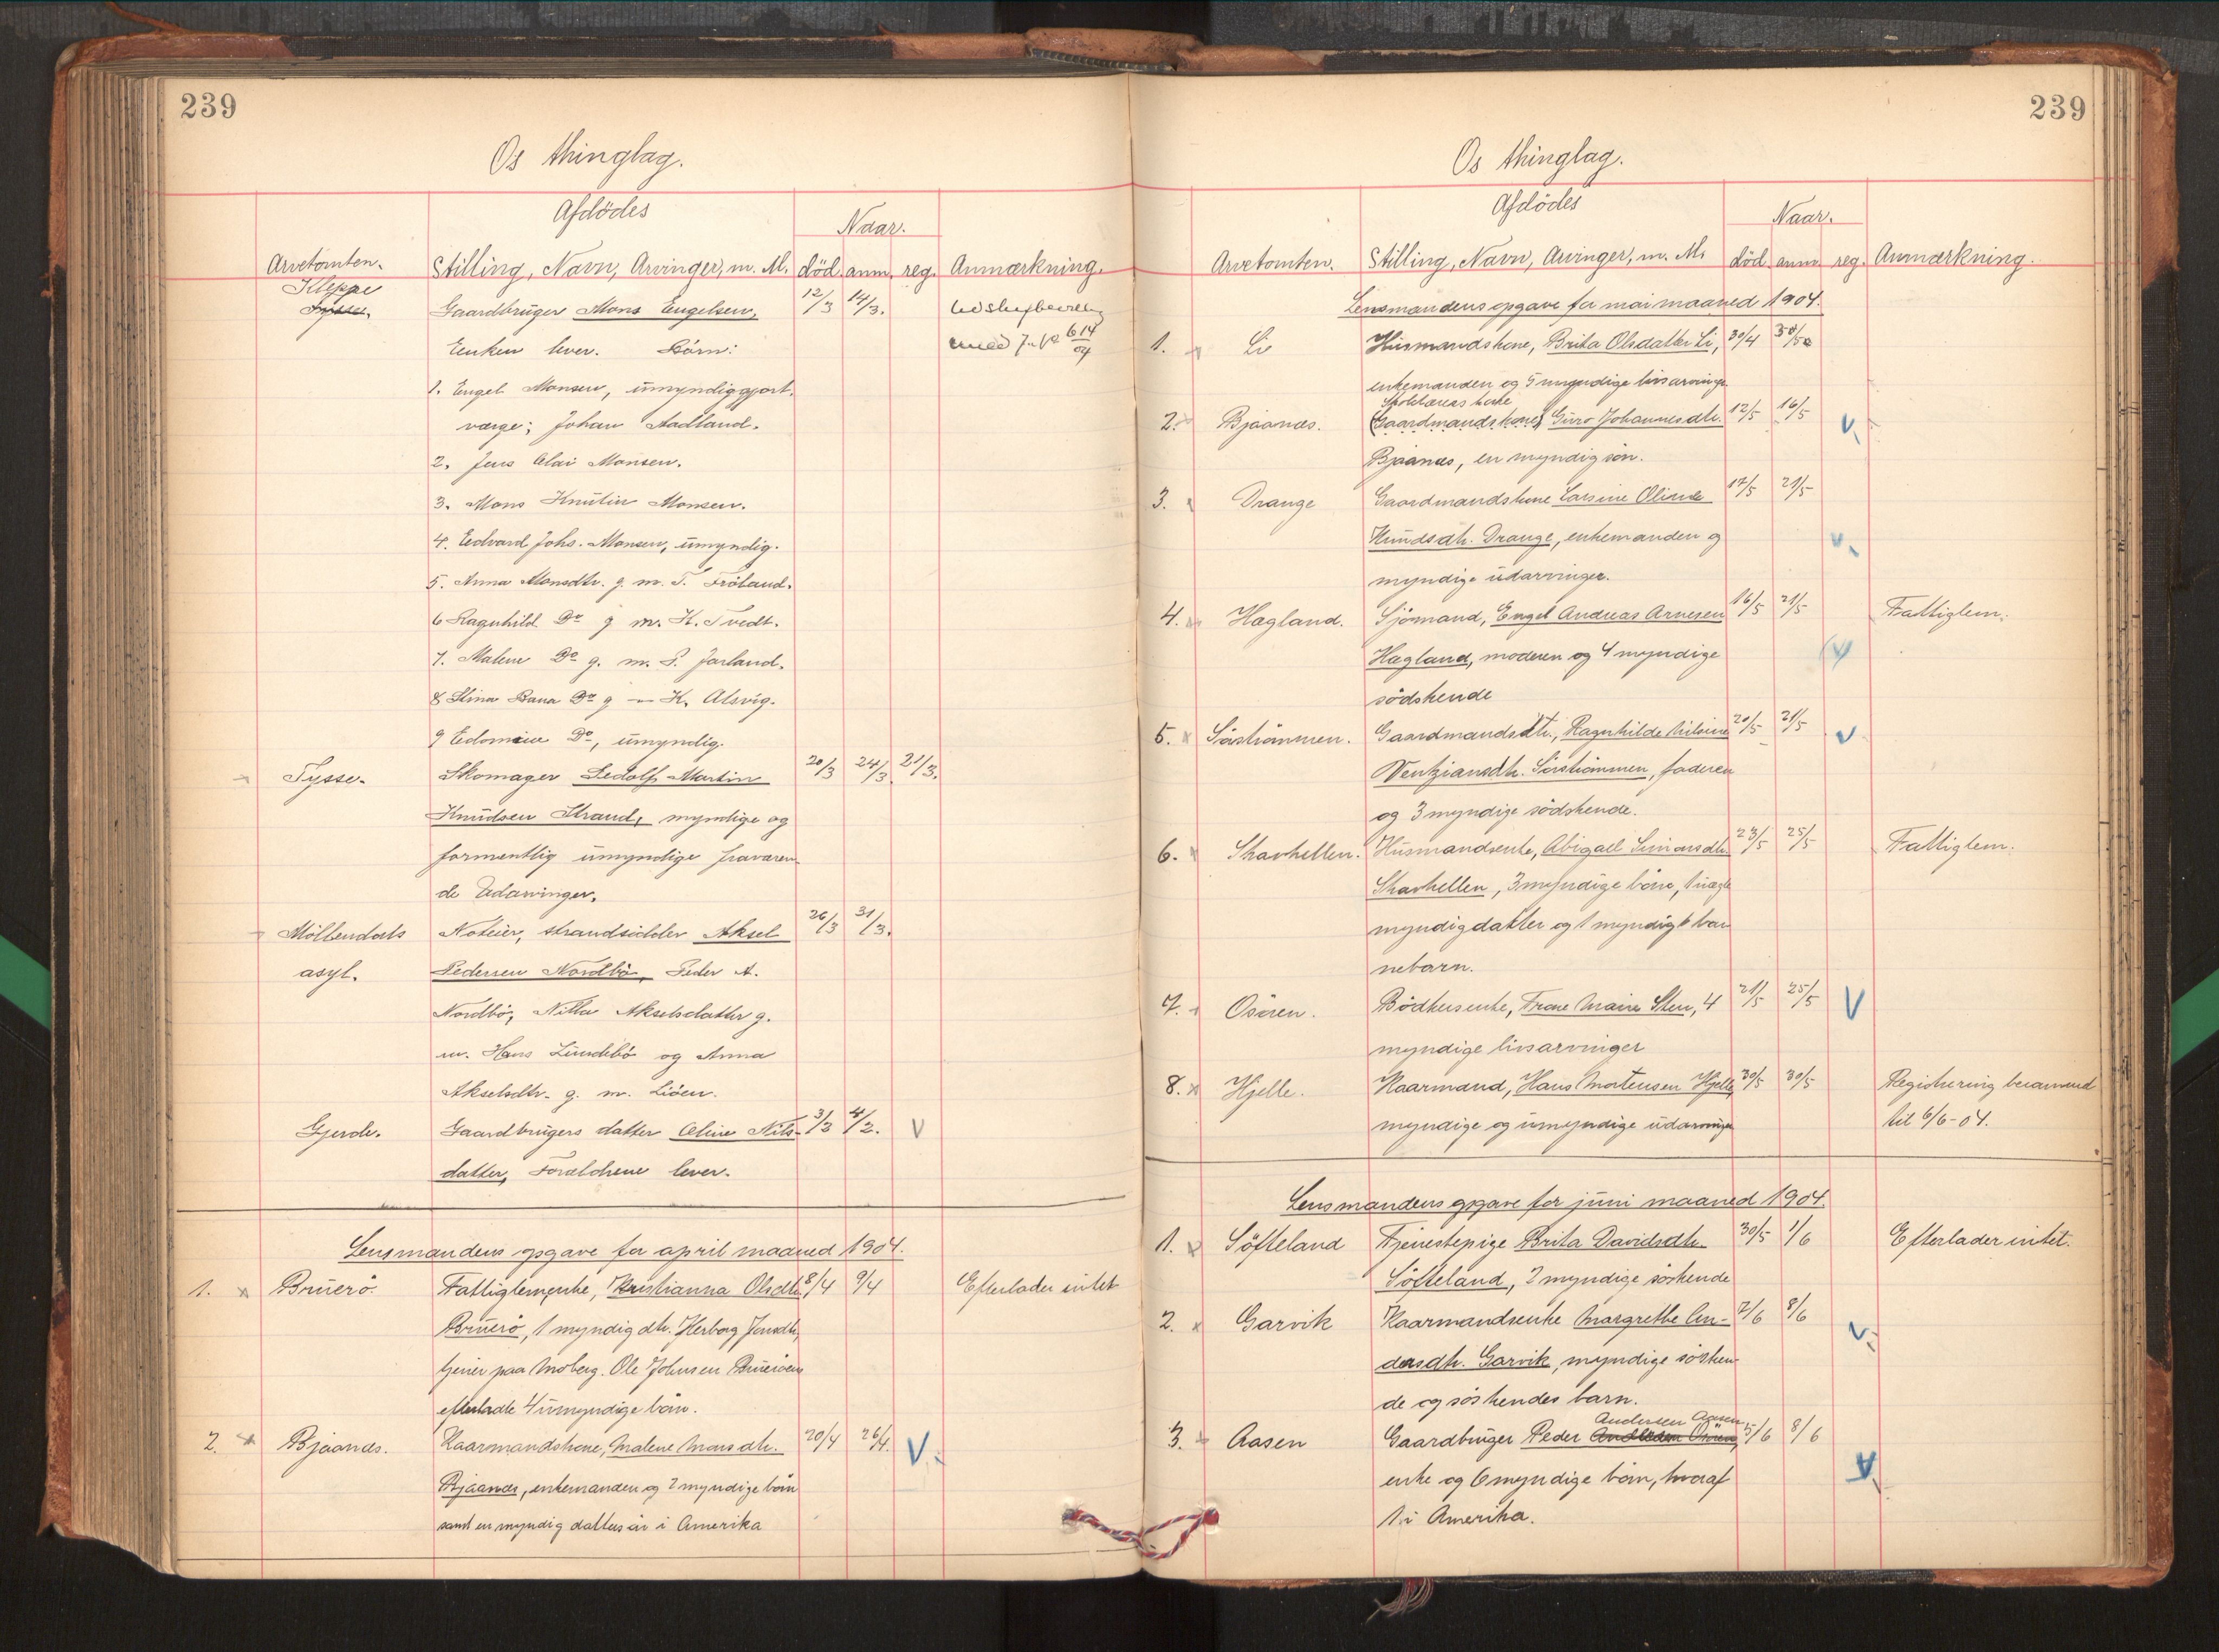 239
Os thinglag.
Afdödes
Naar.
Arvetomten. Stilling, Navn, Arvinger, m. M. död. anm. reg. Anmærkning.
Kleppe
Tysse. Gaardbruger Mons Engelsen, 12/3 14/3.
Enken lever. Börn: 
1. Engel Monsen, umyndiggjort.
værge; Johan Aadland.
2. Jens Olai Monsen.
3. Mons Knutin Monsen.
4. Edvard Johs. Monsen, umyndig.
5. Anna Monsdtr. g. m. T. Fröland.
6 Ragnhild Do g m. K. Tvedt.
7. Malene Do g. m. P. Jarland.
8 Stina Do g — K. Alsvig.
9 Do, umyndig.
Tysse. Skomager Martin 20/3 24/3. 21/3.
Knudsen Strand, myndige og
formentlig umyndige fraværen-
de Udarvinger.
Möllendals Noteier, strandsidder Aksel 26/3 31/3.
asyl. Pedersen Nordbö, Peder A.
Nordbö, Nilla Akselsdatter g.
m. Hans Lundebö og Anna
Akselsdtr. g. m. Liöen.
Gjerde. Gaardbrugers datter Oline Nils- 3/2 4/2. V
datter, Forældrene lever.
Lensmandens opgave for april maaned 1904.
1. x Bruerö. Fattiglemenke, Kristianna Olsdtr. 8/4 9/4 Efterlader intet
Bruerö, 1 myndig dtr. Herborg Jonsdtr,
tjener paa Moberg. Ole Johnsen Brueröens
efterladte 4 umyndige börn.
2. x Bjaanæs. Kaarmandskone, Malene Monsdtr. 20/4 26/4. V.
Bjaanæs, enkemanden og 2 myndige börn
samt en myndig dattersön i Amerika
239
Os thinglag.
Afdödes
Naar.
Arvetomten. Stilling, Navn, Arvinger, m. M. död. anm. reg. Anmærkning.
Lensmandens opgave for mai maaned 1904.
1. x Li Husmandskone, Brita Olsdatter Li, 30/4
enkemanden og 5 myndige livsarvinger
2. x Bjaanæs. (Gaardmandskone) Guro Johannesdtr. 12/5 16/5 V.
Bjaanæs, en myndig sön.
3. x Drange Gaardmandskone Larsine Oline 17/5 21/5
Knudsdtr. Drange, enkemanden og v.
myndige udarvinger.
4. x Hagland. Sjömand, Engel Andreas Arnesen 16/5 21/5 Fattiglem.
Hagland, moderen og 4 myndige (v)
södskende
5. x Sörströnmen. Gaardmandsdtr., Ragnhilde Nilsine 20/5 21/5 v
Ventziansdtr. Sörströnmen, faderen
og 3 myndige södskende.
6. x Skarhellen. Husmandsenke, Abigael Simonsdtr. 23/5 25/5 Fattiglem.
Skarhellen, 3 myndige börn, 1 uægte
myndig datter og 1 myndigt bar-
nebarn.
7. x Osören. Bödkersenke, Marie Sten, 4 21/5 25/5 V
myndige livsarvinger
8. x Hjelle. Kaarmand, Hans Mortensen Hjelle, 30/5 30/5 Registrering berammed
myndige og umyndige udarvinger til 6/6-04.
Lensmandens opgave for juni maaned 1904.
1. x Söfteland Tjenestepige Brita Davidsdtr. 30/5 1/6 Efterlader intet.
Söfteland, 2 myndige söskende
2. x Garvik Kaarmandsenke Margrethe An- 7/6 8/6 v.
dersdtr. Garvik, myndige sösken-
de og söskendes barn.
Andersen Aasen
3. x Aasen Gaardbruger Peder 5/6 8/6
enke og 6 myndige börn, hvoraf V.
1 i Amerika.